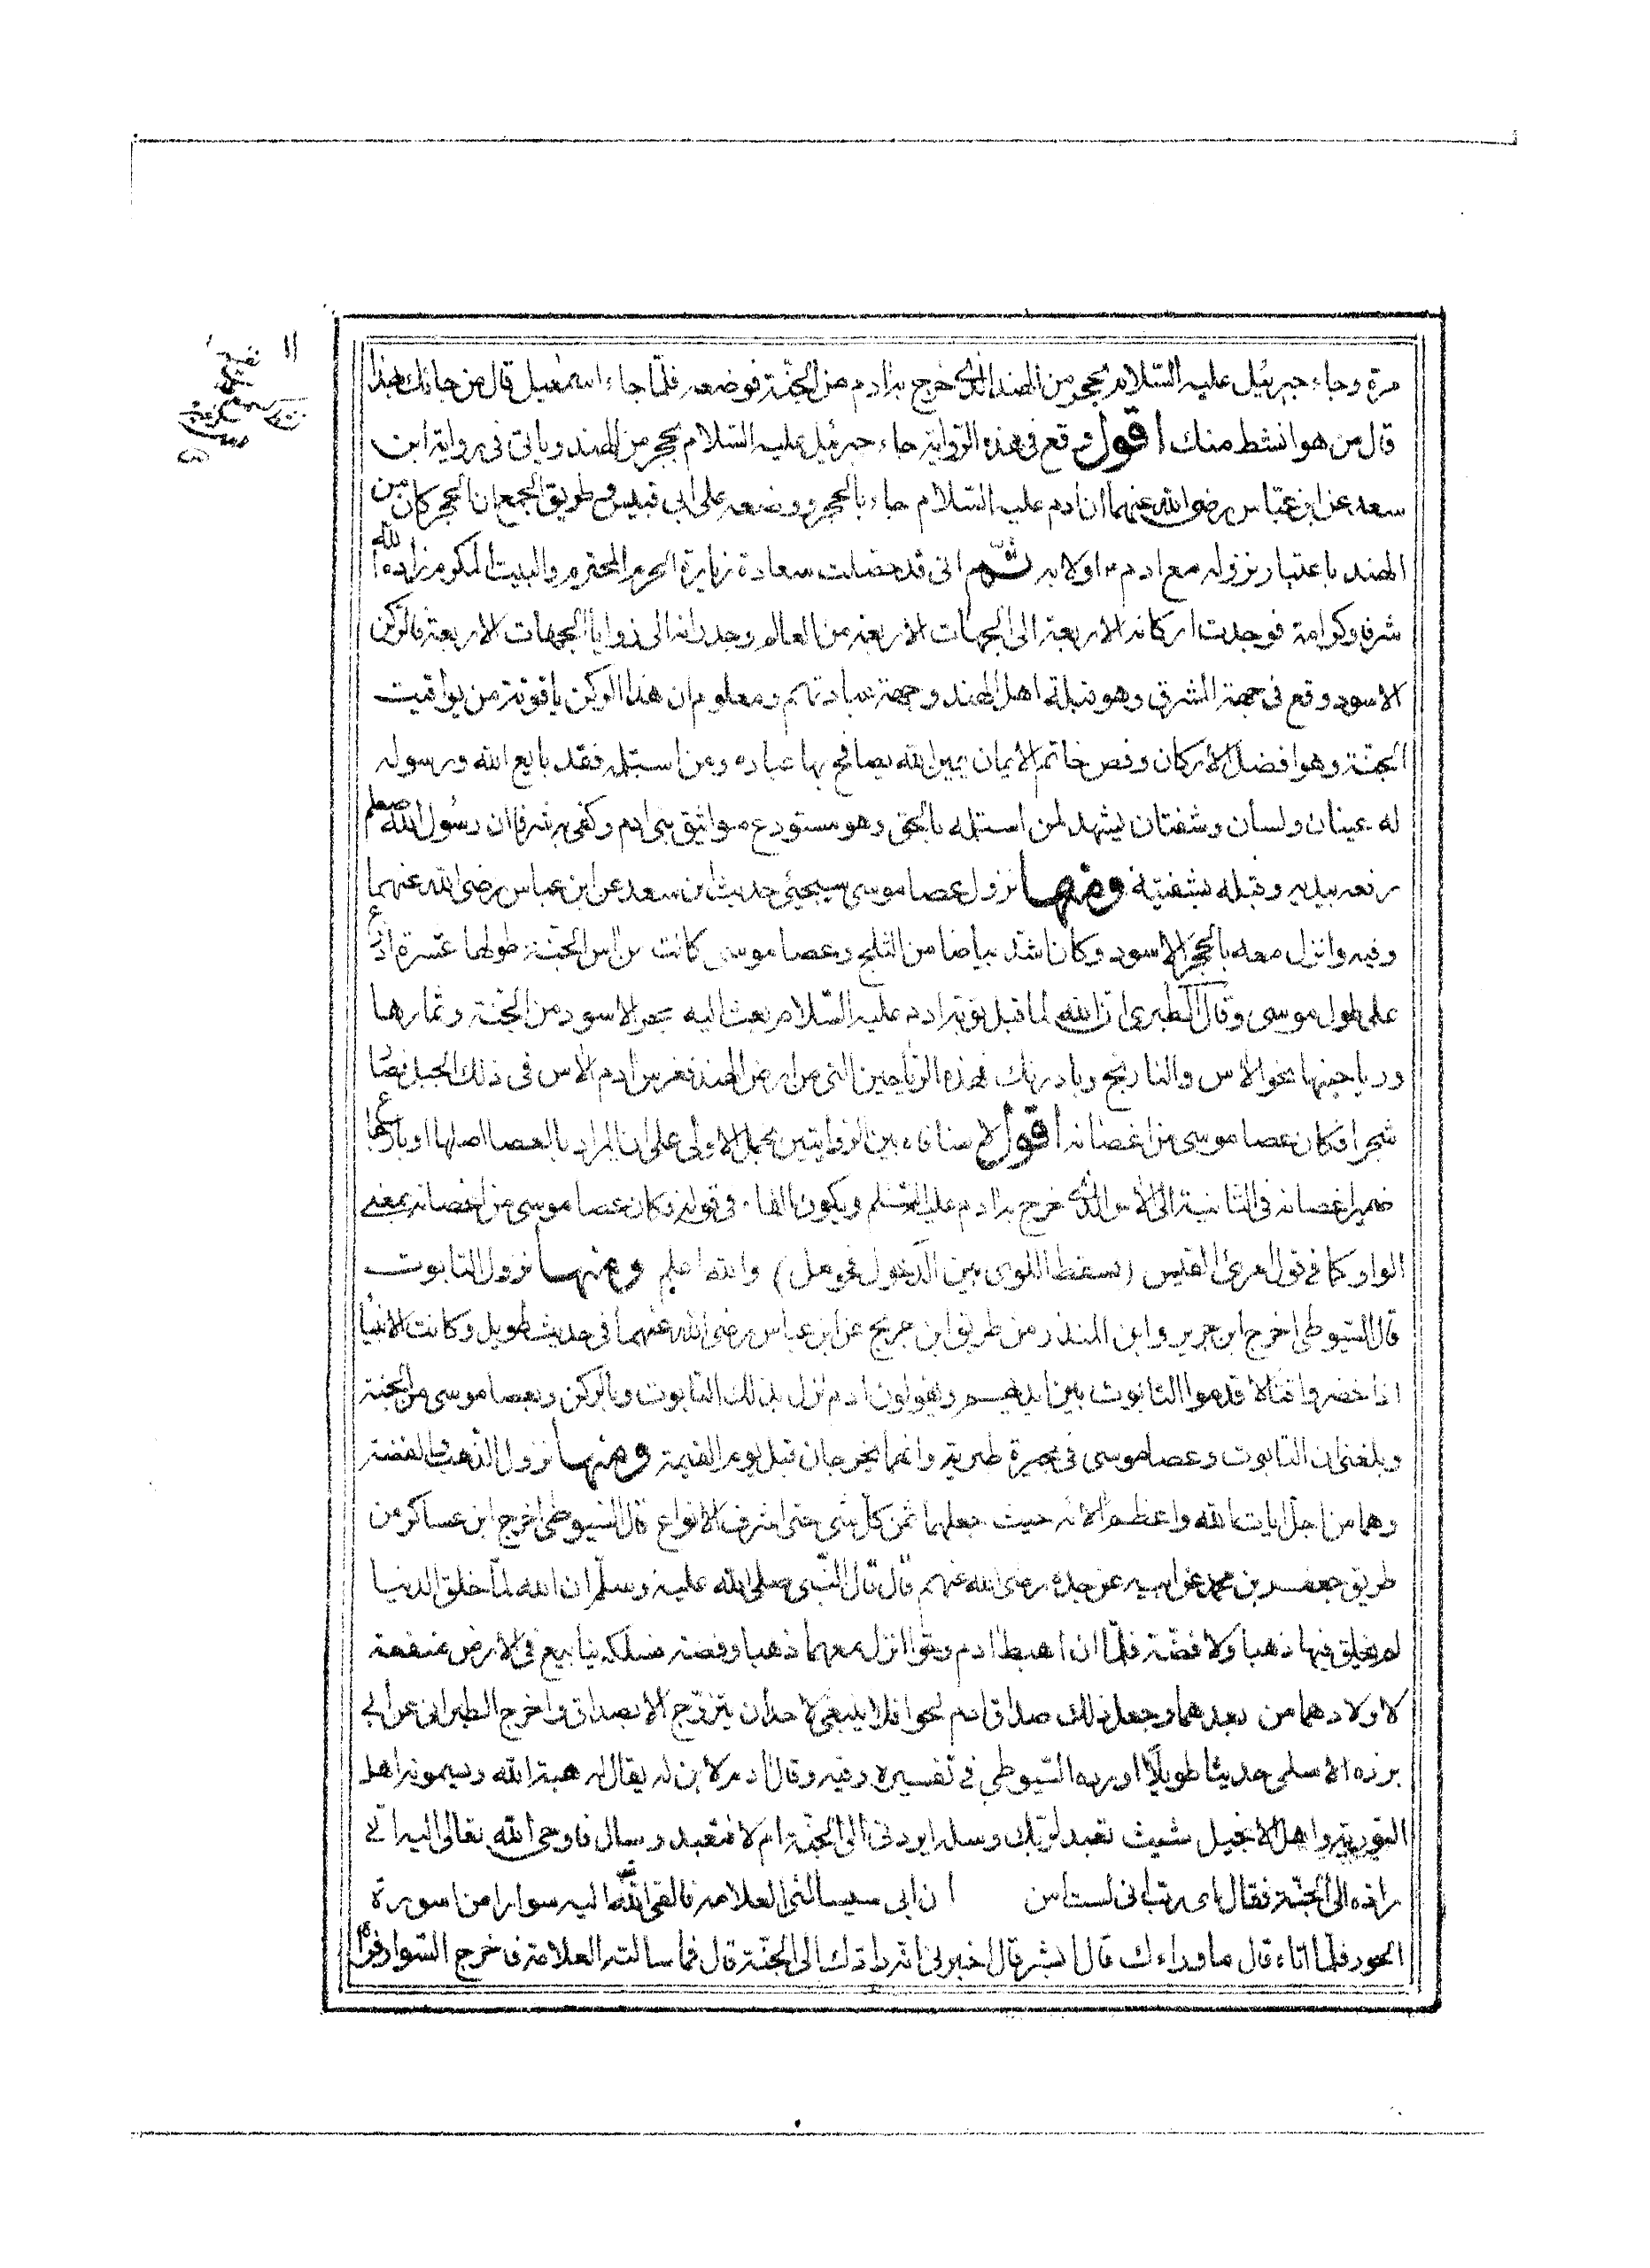 مرة وجاء جبرئيل عليه السلام بحجر من الهند الذى خرج به ادم من الجنة فوضعه فلما جاء اسمعيل قال من جاءك بهذا
قال من هو انشط منك اقول وقع فى هذه الرواية جاء جبرئيل عليه السلام بحجر من الهند وياتى فى رواية ابن
سعد عن ابن عباس رضى الله عنهما ان ادم عليه السلام جاء بالحجر ووضعه على ابى قبيس وطريق الجمع ان الحجر كان من
الهند باعتبار نزوله مع ادم اولا به ثم انى قد حصلت سعادة زيارة الحرم المحترم والبيت المكرم زاده الله
شرفا وكرامة فوجدت اركانه الاربعة الى الجهات الاربعة من العالم وجدرانه الى زوايا الجهات الاربعة فالركن
الاسود وقع فى جهة المشرق وهو قبلة اهل الهند وجهة عبادتهم ومعلوم ان هذا الركن ياقوتة من يواقيت
الجنة وهو افضل الاركان وفص خاتم الايمان يمين الله يصافح بها عباده ومن استلمه فقد بايع الله ورسوله
له عينان ولسان وشفتان يشهد لمن استلمه بالحق وهو مستودع مواثيق بنى ادم وكفى به شرفا ان رسول الله صلعم
رفعه بيديه وقبله بشفتيه ومنها نزول عصا موسى سيجئ حديث ابن سعد عن ابن عباس رضى الله عنهما
وفيه وانزل معه بالحجر الاسود وكان اشد بياضا من الثلج وعصا موسى كانت من اس الجنة طولها عشرة اذرع
على طول موسى وقال الطبرى ان الله لما قبل توبة ادم عليه السلام بعث اليه بحجر الاسود من الجنة وثمارها
ورياحينها نحو الاس والنارنج وبادرنك فهذه الرياحين التى من ارض الهند فغرس ادم الاس فى ذلك الجبل فصار
شجرا فكان عصا موسى من اغصانه اقول لا منافاة بين الروايتين بحمل الاولى على ان المراد بالعصا اصلها او بارجاع
ضمير اغصانه فى الثانية الى الاس الذى خرج به ادم عليه السلم ويكون الفاء فى قوله فكان عصا موسى من اغصانه بمعنى
الواو كما فى قول امرئ القيس (بسقط اللوى بين الدخول فحومل) والله اعلم ومنها نزول التابوت
قال السيوطى اخرج ابن جرير وابن المنذر من طريق ابن جريج عن ابن عباس رضى الله عنهما فى حديث طويل وكانت الانبيا
اذا حضروا قتالا قدموا التابوت بين ايديهم ويقولون ادم نزل بذلك التابوت وبالركن وبعصا موسى من الجنة
وبلغنى ان التابوت وعصا موسى فى بحيرة طبرية وانهما يخرجان قبل يوم القيمة ومنها نزول الذهب والفضة
وهما من اجل ايات الله واعظم الائه حيث جعلهما ثمن كل شى حتى اشرف الانواع قال السيوطى اخرج ابن عساكر من
طريق جعفر بن محمد عن ابيه عن جده رضى الله عنهم قال قال النبى صلى الله عليه وسلم ان الله لما خلق الدنيا
لم يخلق فيها ذهبا ولا فضة فلما ان اهبط ادم وحوا انزل معهما ذهبا وفضة فسلكه ينابيع فى الارض منفعة
لاولادهما من بعدهما وجعل ذلك صداق ادم لحوا فلا ينبغى لاحد ان يتزوج الا بصداق واخرج الطبرانى عن ابى
برزه الاسلمى حديثا طويلا اورده السيوطى فى تفسيره وفيه وقال ادم لابن له يقال له هبة الله ويسمونه اهل
التورية واهل الانجيل شيث تعبد لربك وسله ايردنى الى الجنة ام لا فتعبد وسال فاوحى الله تعالى اليه انى
راده الى الجنة فقال اى رب انى لست امن ان ابى سيسالنى العلامة فالقى الله اليه سوارا من اسورة
الحور فلما اتاه قال ما وراءك قال ابشر قال اخبرنى انه رادك الى الجنة قال فما سالته العلامة فاخرج السوار فراه